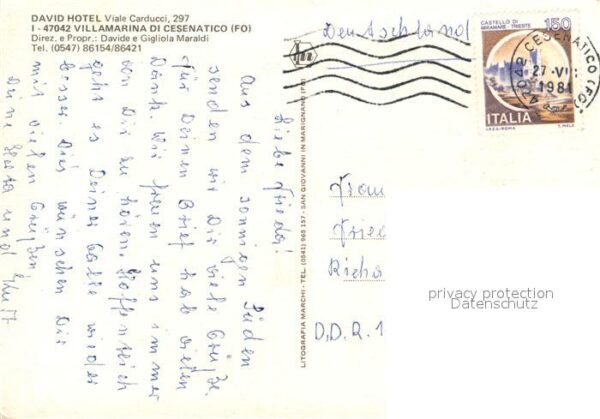 DAVID HOTEL Viale Carducci, 297
I - 47042 VILLAMARINA DI CESENATICO (FO)
Direz. e Propr.: Davide e Gigliola Maraldi
Tel. (0547) 86154/86421
Deutschland
CASTELLO DI
MIRAMARE - TRIESTE
150
47042 CESENATICO (FO)
27-VII
1981
ITALIA
I.P.Z.S.-ROMA
Liebe Frieda!
Aus dem sonnigen Süden
senden wir Dir viele Grüße.
Für Deinen Brief hab vielen
Dank. Wir freuen uns immer
von Dir zu hören. Hoffentlich
geht es Deiner Galle wieder
besser. Dies wünschen Dir
mit vielen Grüßen
Deine Herta und
LITOGRAFIA MARCHI - TEL. (0541) 965 157 - SAN GIOVANNI IN MARIGNANO (FO)
Frau
Frie
Richa
D.D.R. 1
privacy protection
Datenschutz